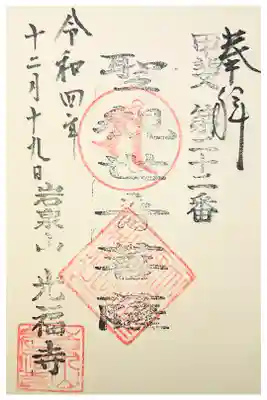 奉拝
甲斐第二十一番
聖観世音菩薩
令和四年
十二月十九日 岩泉山 光福寺